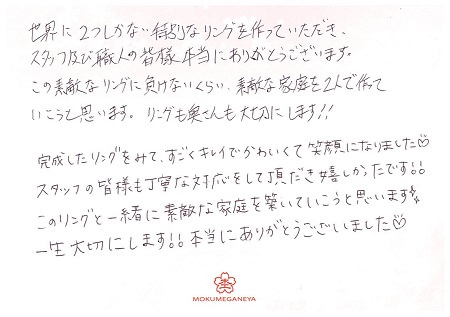 世界に2つしかない特別なリングを作っていただき、
スタッフ及び職人の皆様本当にありがとうございます。
この素敵なリングに負けないくらい、素敵な家庭を2人で作って
いこうと思います。リングも奥さんも大切にします!!
完成したリングをみて、すごくキレイでかわいくて笑顔になりました♡
スタッフの皆様も丁寧な対応をして頂だき嬉しかったです!!
このリングと一緒に素敵な家庭を築いていこうと思います
一生大切にします!!本当にありがとうございました♡
MOKUMEGANEYA